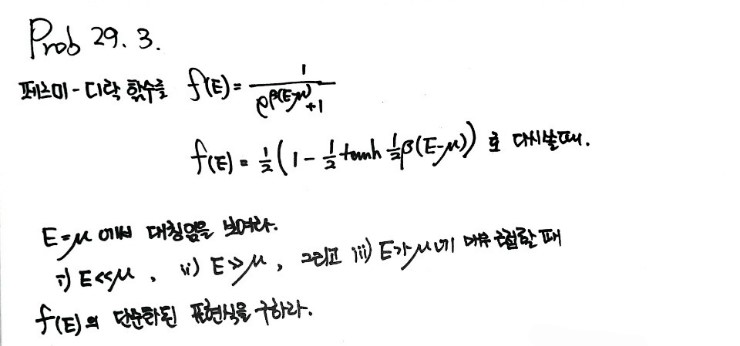 Prob 29. 3.
페르미-디락 함수를 f(E) = 1 / (e^{β(E-μ)} + 1)
f(E) = 1/2 (1 - 1/2 tanh 1/2 β(E-μ)) 로 다시쓸때.
E=μ 에서 대칭임을 보여라.
i) E<<μ , ii) E>>μ , 그리고 iii) E가 μ네 매우 근접할 때
f(E)의 단순화된 표현식을 구하라.